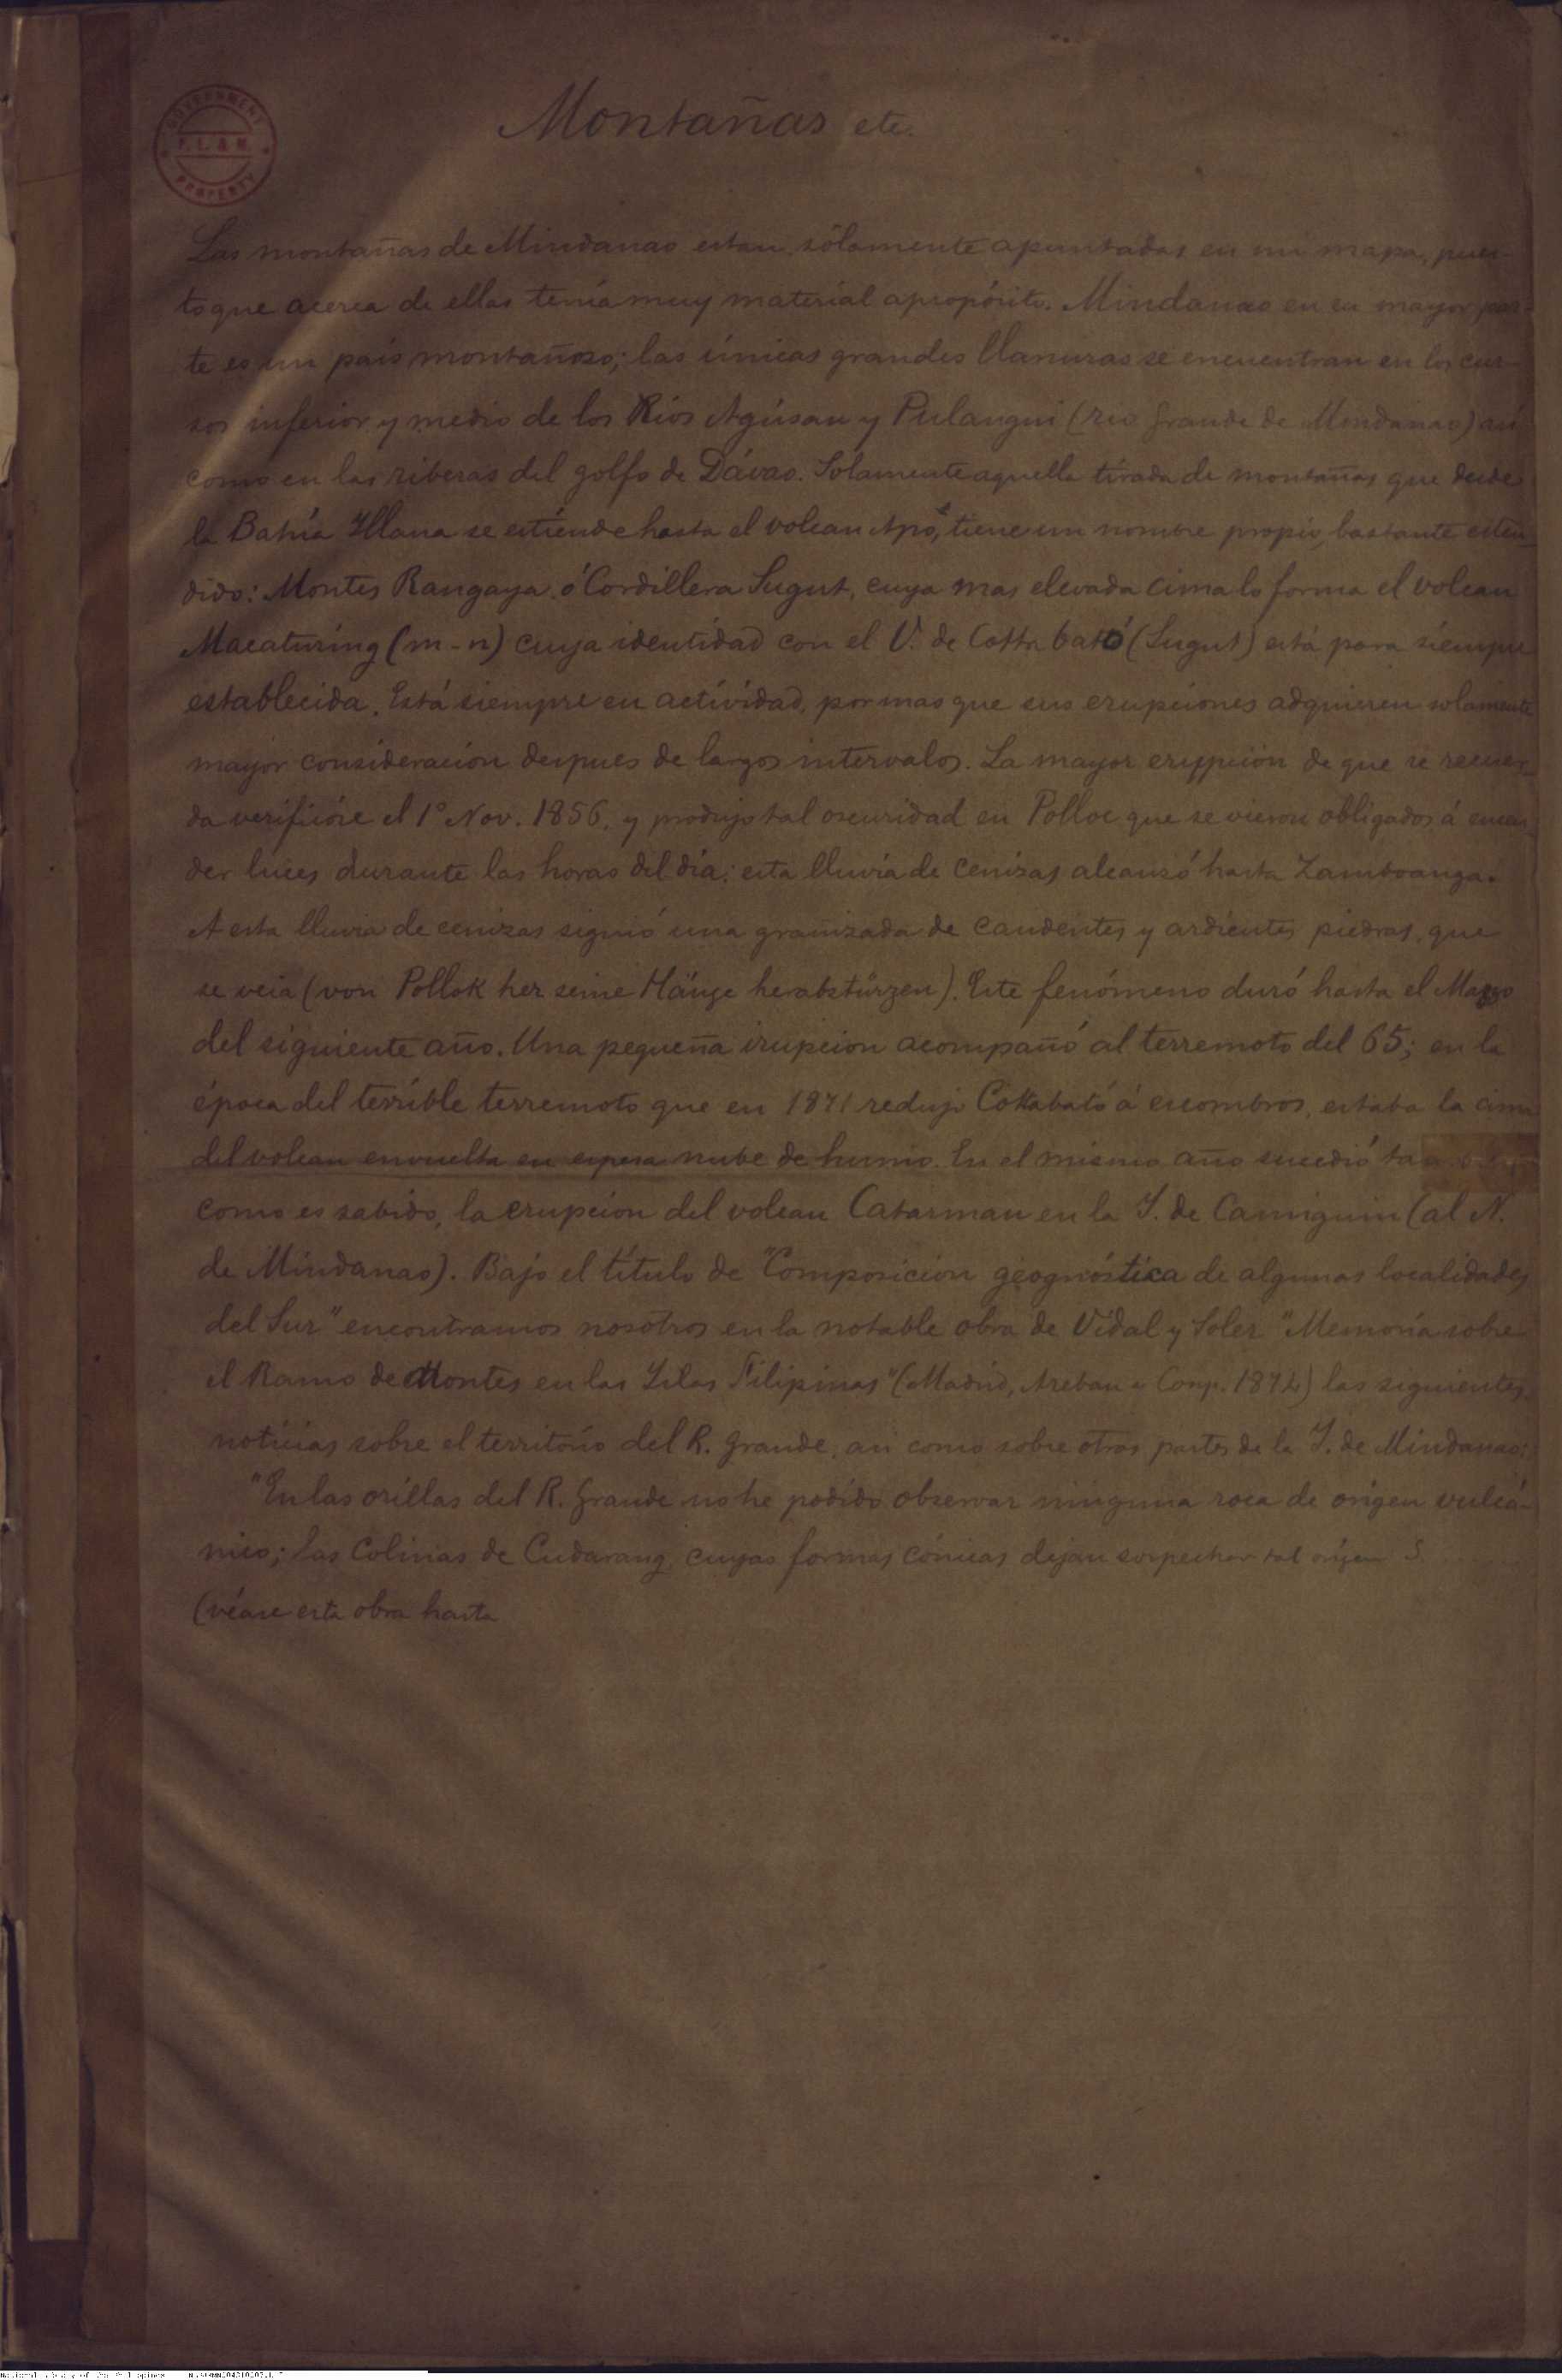 GOVERNMENT
P. L. & M.
PROPERTY
Montañas etc.
Las montañas de Mindanao estan sólamente apuntadas en mi mapa, pues-
to que acerca de ellas tenía muy material apropósito. Mindanao en su mayor par-
te es un país montañoso; las únicas grandes llanuras se encuentran en los cur-
sos inferior y medio de los Rios Agúsan y Pulangui (rio grande de Mindanao) así
como en las riberas del golfo de Dávao. Sólamente aquella tirada de montañas que desde
la Bahía Illana se estiende hasta el volcan Apó, tiene un nombre propio, bastante esten-
dido: Montes Rangaya ó Cordillera Sugut, cuya mas elevada cima lo forma el volcan
Macaturing (m-n) cuya identidad con el V. de Cotta bató (Sugut) está para siempre
establecida. Está siempre en actividad, por mas que sus erupciones adquieren solamente
mayor consideración despues de largos intervalos. La mayor erupción de que se recuer-
da verificóse el 1º Nov. 1856, y produjo tal oscuridad en Polloc que se vieron obligados á encen-
der luces durante las horas del día: esta lluvia de cenizas alcanzó hasta Zamboanga.
A esta lluvia de cenizas siguió una granizada de candentes y ardientes piedras, que
se veia (von Pollok her seine Hänge herabstürzen). Este fenómeno duró hasta el Mayo
del siguiente año. Una pequeña irupcion acompañó al terremoto del 65; en la
época del terrible terremoto que en 1871 redujo Cottabató á escombros, estaba la cima
del volcan envuelta en espesa nube de humo. En el mismo año sucedió
como es sabido, la erupción del volcan Catarman en la I. de Camiguin (al N.
de Mindanao). Bajo el título de "Composicion geognóstica de algunas localidades
del Sur" encontramos nosotros en la notable obra de Vidal y Soler "Memoria sobre
el Ramo de Montes en las Islas Filipinas" (Madrid, Areban & Comp. 1874) las siguientes
noticias sobre el territorio del R. grande, así como sobre otras partes de la I. de Mindanao:
"En las orillas del R. Grande no he podido observar ninguna roca de origen vulcá-
nico; las Colinas de Cudarang, cuyas formas cónicas dejan sospechar tal origen
(véase esta obra hasta